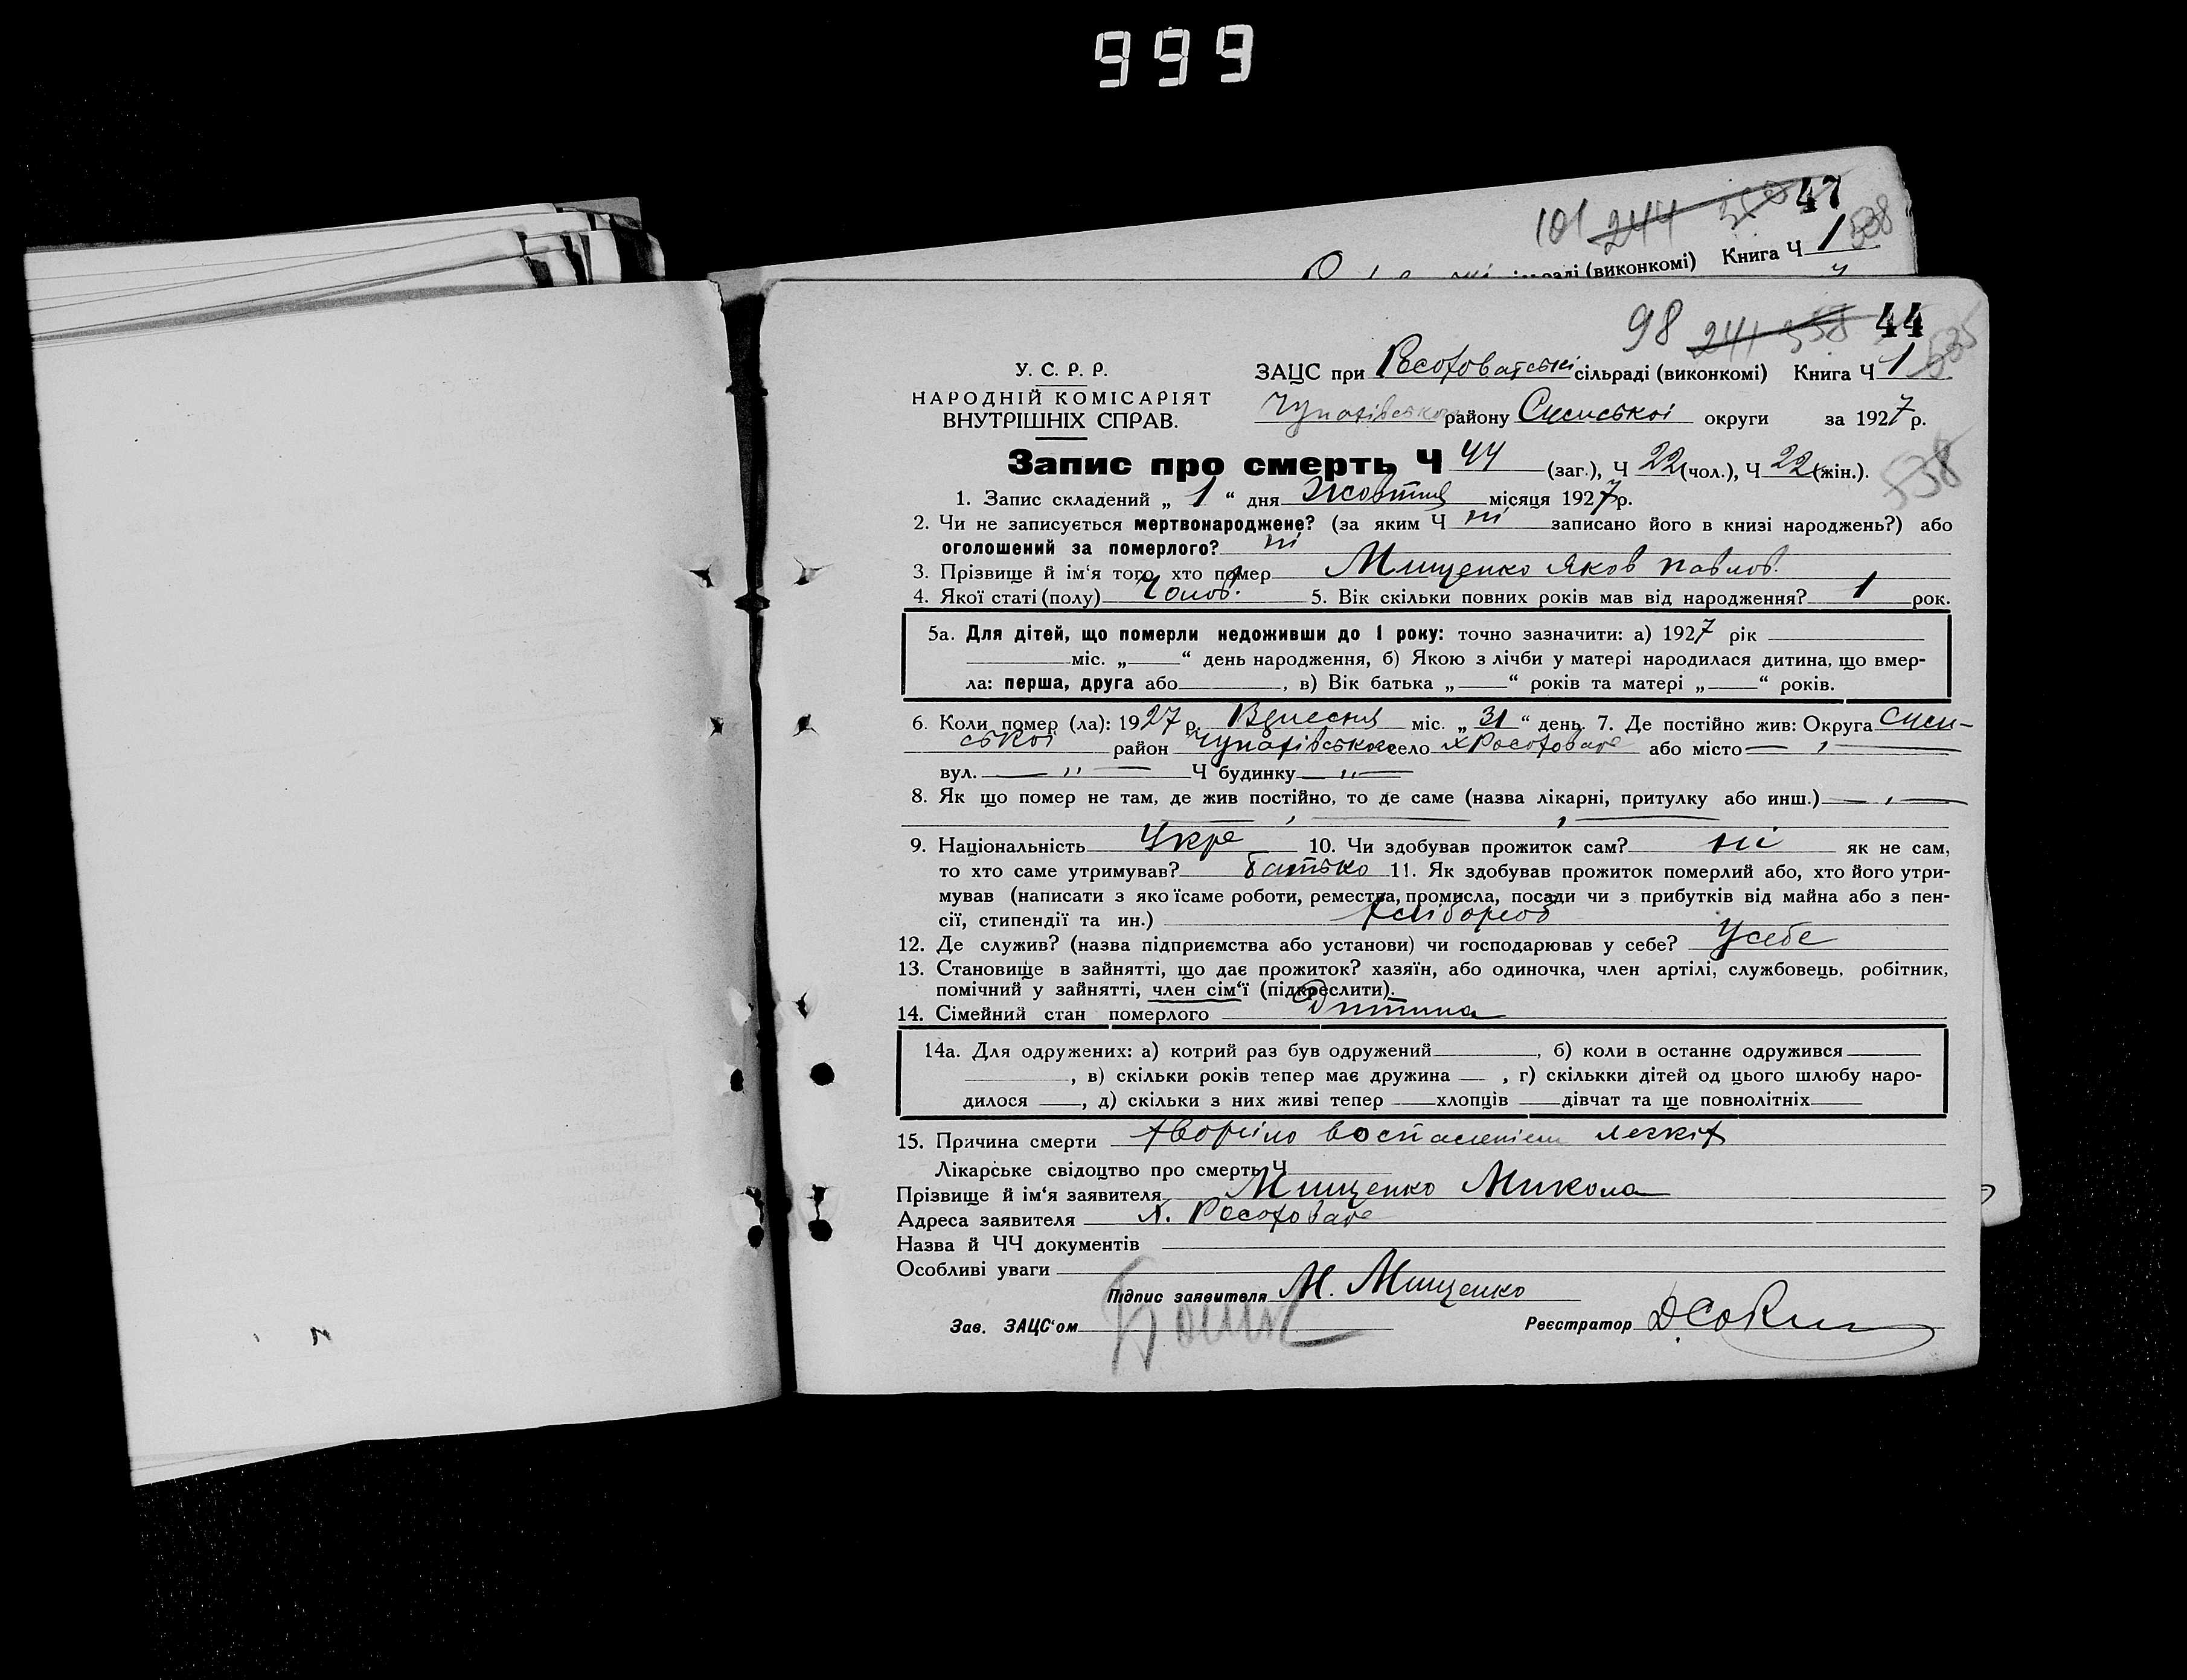 999
101 244 47
538
сільраді (виконкомі) Книга Ч 1
98 241 358 44
535
У. С. Р. Р.
ЗАЦС при Росоховатські сільраді (виконкомі) Книга Ч 1
НАРОДНІЙ КОМІСАРІЯТ
ВНУТРІШНІХ СПРАВ.
Чупахівського району Сумської округи за 1927 р.
Запис про смерть Ч 44 (заг.), Ч 22 (чол.), Ч 22 (жін.).
538
1. Запис складений „ 1 “ дня Жовтня місяця 1927 р.
2. Чи не записується мертвонароджене? (за яким Ч ні записано його в книзі народжень?) або
оголошений за померлого? ні
3. Прізвище й ім‘я того, хто помер Мищенко Яков Павлов.
4. Якої статі (полу) Чолов. 5. Вік скільки повних років мав від народження? 1 рок.
5а. Для дітей, що померли недоживши до 1 року: точно зазначити: а) 1927 рік
міс. „ “ день народження, б) Якою з лічби у матері народилася дитина, що вмер-
ла: перша, друга або , в) Вік батька „ “ років та матері „ “ років.
6. Коли помер (ла): 1927 р. Вересня міс. „ 31 “ день. 7. Де постійно жив: Округа Сум-
ської район Чупахівського село х Росоховате або місто — „ —
вул. — „ — Ч будинку — „ —
8. Як що помер не там, де жив постійно, то де саме (назва лікарні, притулку або инш.) — „ —
9. Національність Укре 10. Чи здобував прожиток сам? ні як не сам,
то хто саме утримував? Батько 11. Як здобував прожиток померлий або, хто його утри-
мував (написати з якоїсаме роботи, ремества, промисла, посади чи з прибутків від майна або з пен-
сії, стипендії та ин.) хлібороб
12. Де служив? (назва підприємства або установи) чи господарював у себе? У себе
13. Становище в зайнятті, що дає прожиток? хазяїн, або одиночка, член артілі, службовець, робітник,
помічний у зайнятті, член сім‘ї (підкреслити).
14. Сімейний стан померлого Дитина
14а. Для одружених: а) котрий раз був одружений , б) коли в останнє одружився
, в) скільки років тепер має дружина — , г) скількки дітей од цього шлюбу наро-
дилося , д) скільки з них живі тепер хлопців дівчат та ще повнолітніх
15. Причина смерти хворіло воспаленіем легких
Лікарське свідоцтво про смерть Ч
Прізвище й ім‘я заявителя Мищенко Микола
Адреса заявителя х. Росоховате
Назва й ЧЧ документів
Особливі уваги
Підпис заявителя М. Мищенко
Зав. ЗАЦС‘ом
Реєстратор